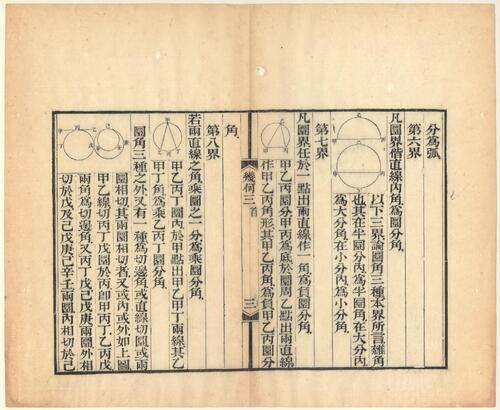 分爲弧
第六界
凡圜界偕直線內角爲圜分角
以下三界論圜角三種本界所言雜角
也其在半圜分內爲半圜角在大分內
爲大分角在小分內爲小分角
第七界
凡圜界任於一點出兩直線作一角爲負圜分角
甲乙丙圜分甲丙爲底於圜周乙點出兩直線
作甲乙丙角形其甲乙丙角爲負甲乙丙圜分
幾何三首
三
角
第八界
若兩直線之角乘圜之一分爲乘圜分角
甲乙丙丁圜內於甲點出甲乙甲丁兩線其乙
甲丁角爲乘乙丙丁圜分角
圜角三種之外又有一種爲切邊角或直線切圜或兩
圜相切其兩圜相切者又或內或外如上圖
甲乙線切丙丁戊圜於丙卽甲丙丁乙丙戊
兩角爲切邊角又丙丁戊己戊庚兩圜外相
切於戊及己戊庚己辛壬兩圜內相切於己